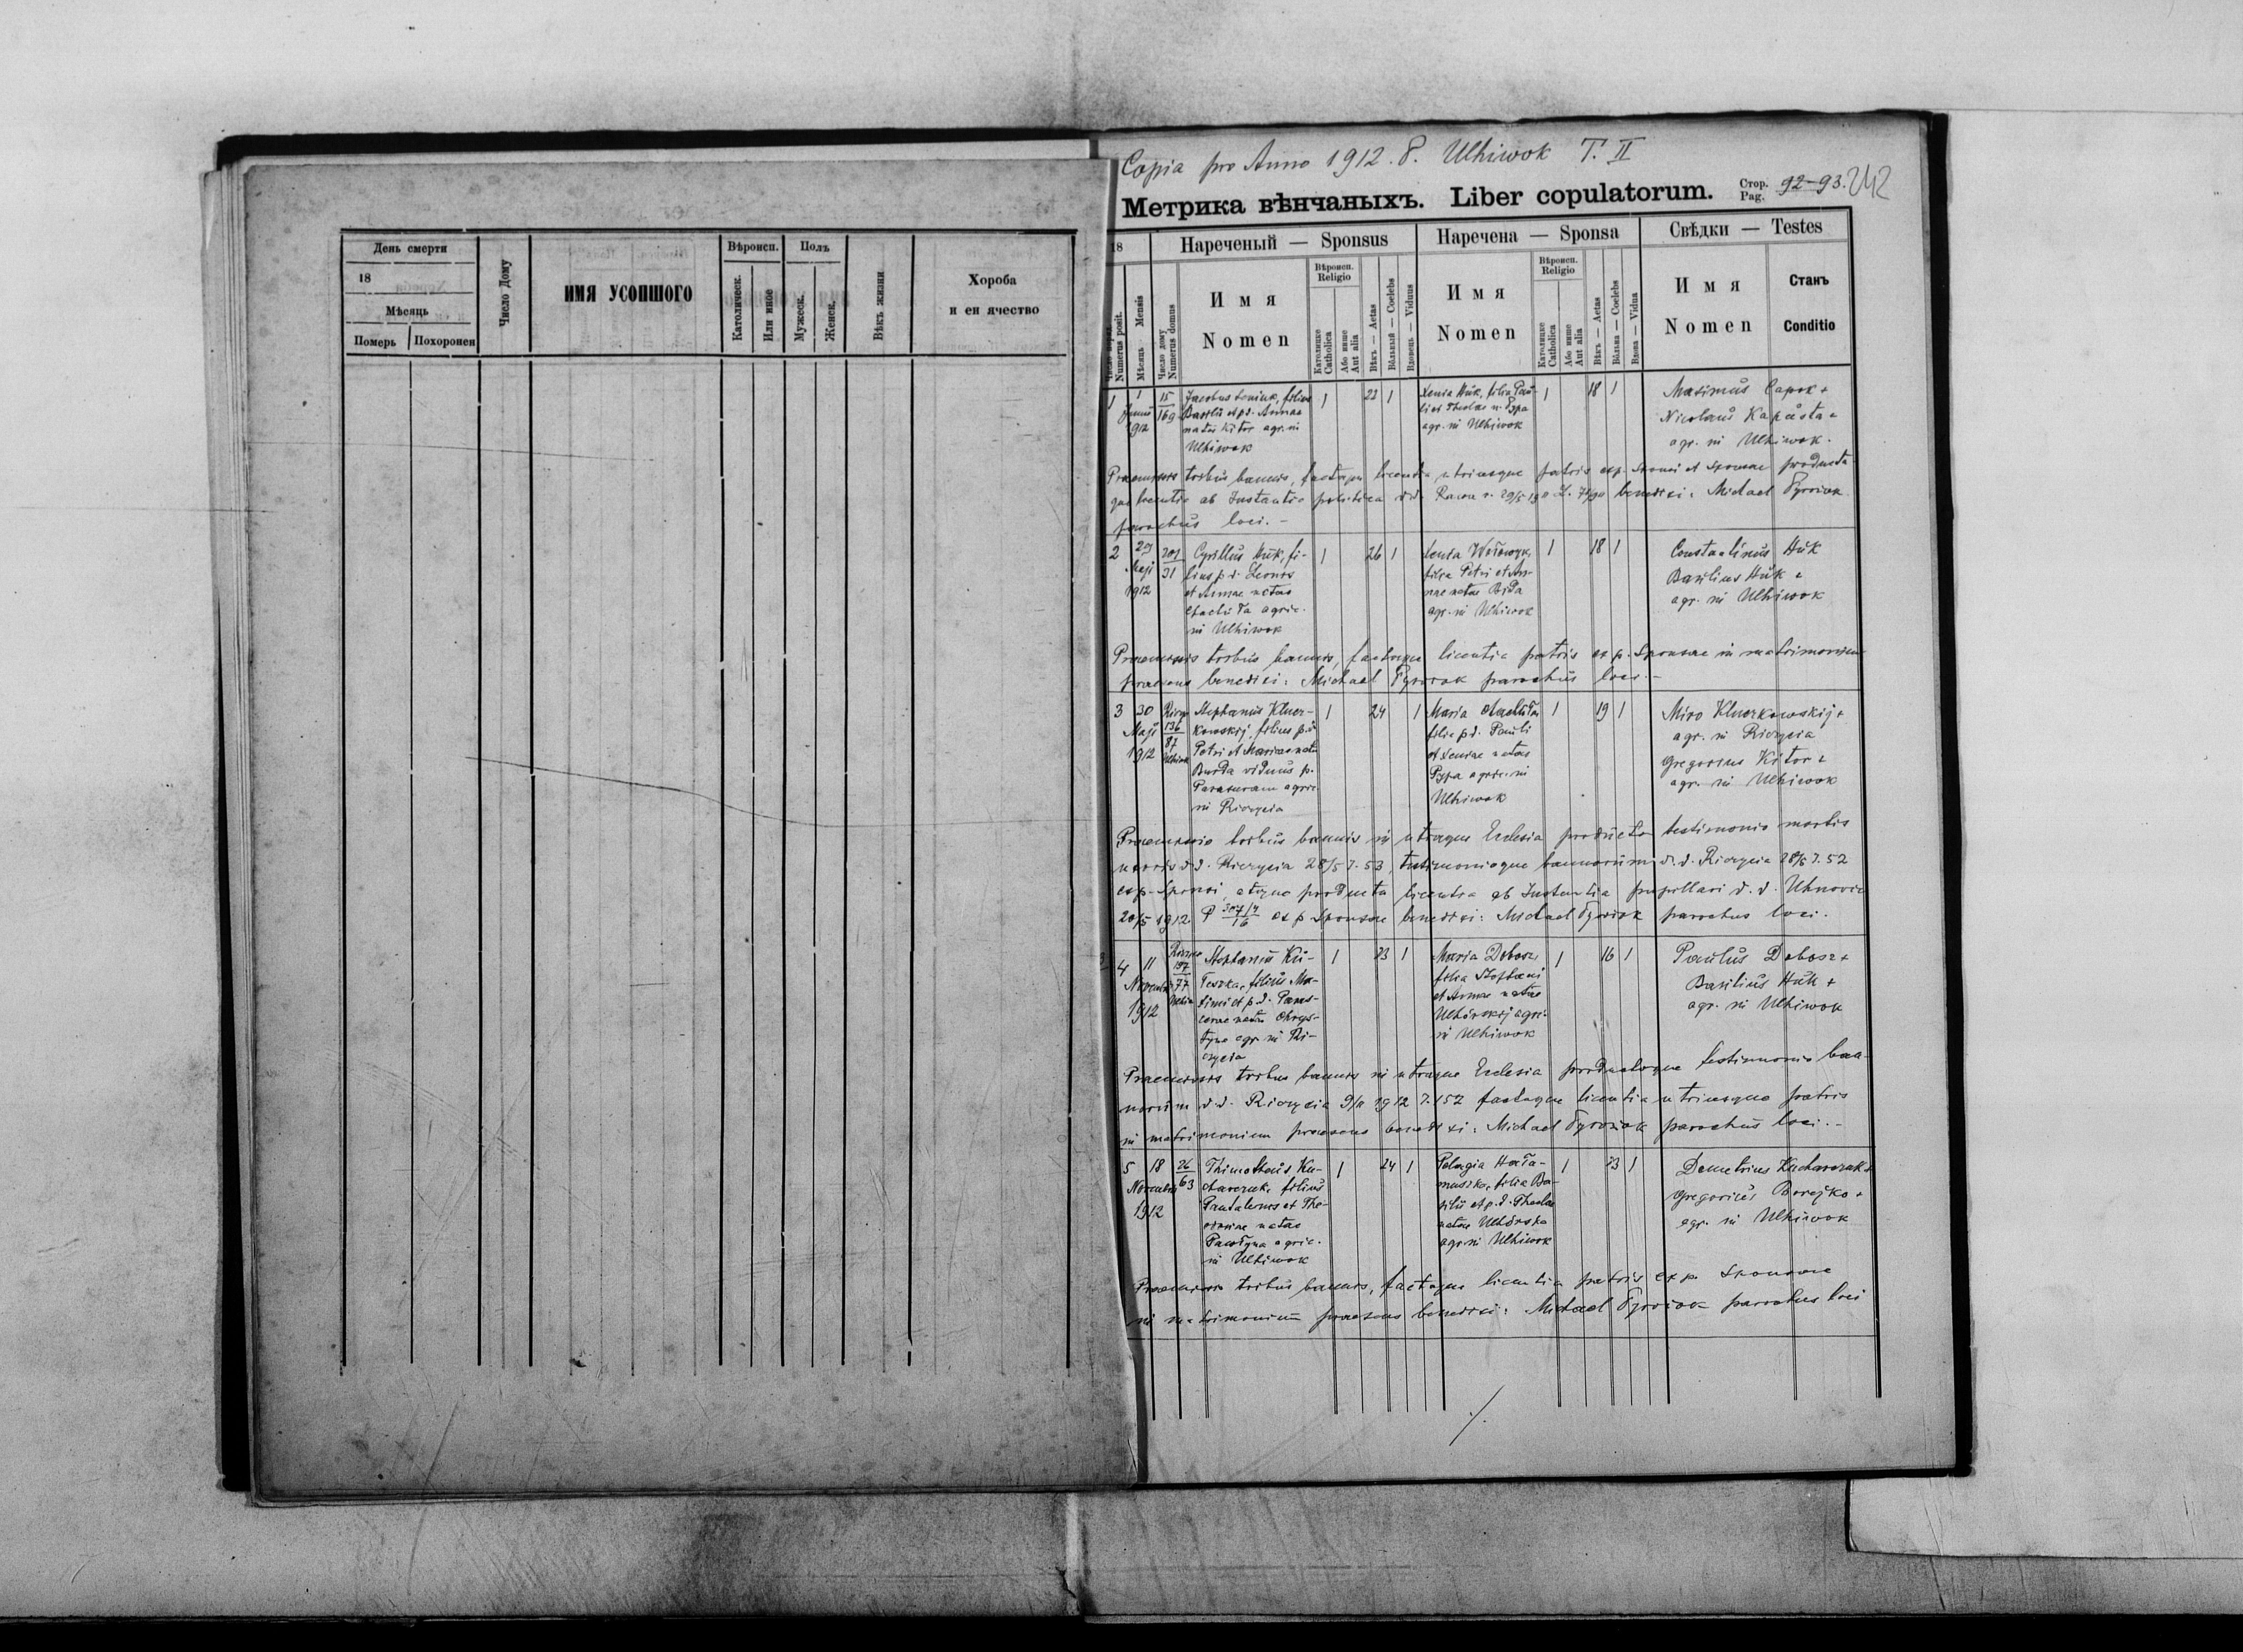 День смерти
18
Мѣсяць
Померъ
Похоронен
Число Дому
ИМЯ УСОПШОГО
Вѣроисп.
Католическ.
Или иное
Полъ
Мужеск.
Женск.
Вѣкъ жизни
Хороба
и еи ячество
Copia pro Anno 1912. 8. Uhiwok T. II
Метрика вѣнчаныхъ. Liber copulatorum.
Стор.
Pag.
92-93.
242
18
Нареченый — Sponsus
Наречена — Sponsa
Свѣдки — Testes
Numerus posit.
Мѣсяць Mensis
Число дому
Numerus domus
Имя
Nomen
Вѣроисп.
Religio
Католицке
Catholica
Або инше
Aut alia
Вѣкъ — Aetas
Вôльный — Coelebs
Вдовець — Viduus
Имя
Nomen
Вѣроисп.
Religio
Католицке
Catholica
Або инше
Aut alia
Вѣкъ — Aetas
Вôльна — Coelebs
Вдова — Vidua
Имя
Nomen
Станъ
Conditio
1
1
Junii
1912
15
169
Jacobus filius
Basilii et p.d. Annae
natae Kitor agr. in
Uhiwok
1
22
1
Xenia Huk, filia Pau-
li et Theclae n. Pypa
agr. in Uhiwok
1
18
1
Maximus Capok +
Nicolaus Kapusta +
agr. in Uhiwok.
Praemissis tribus bannis, factaque licentia utriusque patris exp. Sponsi et Sponsae producta
que licentia ab Instantia politica d.d. Rawa benedixi: Michael
parochus loci. -
2
27
Maji
1912
201
31
Cyrillus Huk, fi-
lius p.d. Leonis
et Annae natae
agric.
in Uhiwok
1
26
1
filia Petri et An-
nae natae
agr. in Uhiwok
1
18
1
Constantinus Huk
Basilius Huk +
agr. in Uhiwok
Praemissis tribus bannis, factaque licentia patris ex p. Sponsae in matrimonium
praesens benedixi: Michael parochus loci. -
3
30
Maji
1912
136
87
Uhiwok
Stephanus Klucz-
kowskij, filius p.d.
Petri et Mariae natae
Burda viduus p.
agric
in Riczycia
1
24
1
Maria
filia p.d. Pauli
et Xeniae natae
Pypa agric. in
Uhiwok
1
19
1
Miro Kluczkowskij +
agr. in Riczycia
Gregorius Kitor +
agr. in Uhiwok
Praemissis tribus bannis in utraque Ecclesia producto testimonio mortis
uxoris d.d. Riczycia 28/5 7. 53, testimonioque bannorum d.d. Riczycia 28/5 7. 52
exp. Sponsi, atque producta licentia ab Instantia pupillari d.d. Uhnoviae
20/5 1912 P 307/14 16 ex p. Sponsae benedixi: Michael parochus loci.
4
11
Novembris
1912
197
77
Stephanus Ku-
filius Ma-
ximi et p.d. Paras-
cevae natae Chrys-
tyna agr. in Ri-
czycia
1
23
1
Maria Debosz,
filia Stephani
et Annae natae
Uhorskij agric.
in Uhiwok
1
16
1
Paulus Debosz +
Basilius Huk +
agr. in Uhiwok
Praemissis tribus bannis in utraque Ecclesia productoque testimonio ban-
norum d.d. Riczycia 9/11 1912 7. 157 factaque licentia utriusque patris
in matrimonium praesens benedixi: Michael parochus loci. -
5
18
Novembris
1912
26
63
Thimotheus Ku-
charczuk, filius
Pantalemonis et The-
natae
agric.
in Uhiwok
1
24
1
Pelagia Hała-
filia Ba-
silii et p.d. Theclae
natae Uhorska
agr. in Uhiwok
1
23
1
Demetrius Kucharczuk +
Gregorius Borejko +
agr. in Uhiwok
Praemissis tribus bannis, factaque licentia patris ex p. Sponsae
in matrimonium praesens benedixi: Michael parochus loci